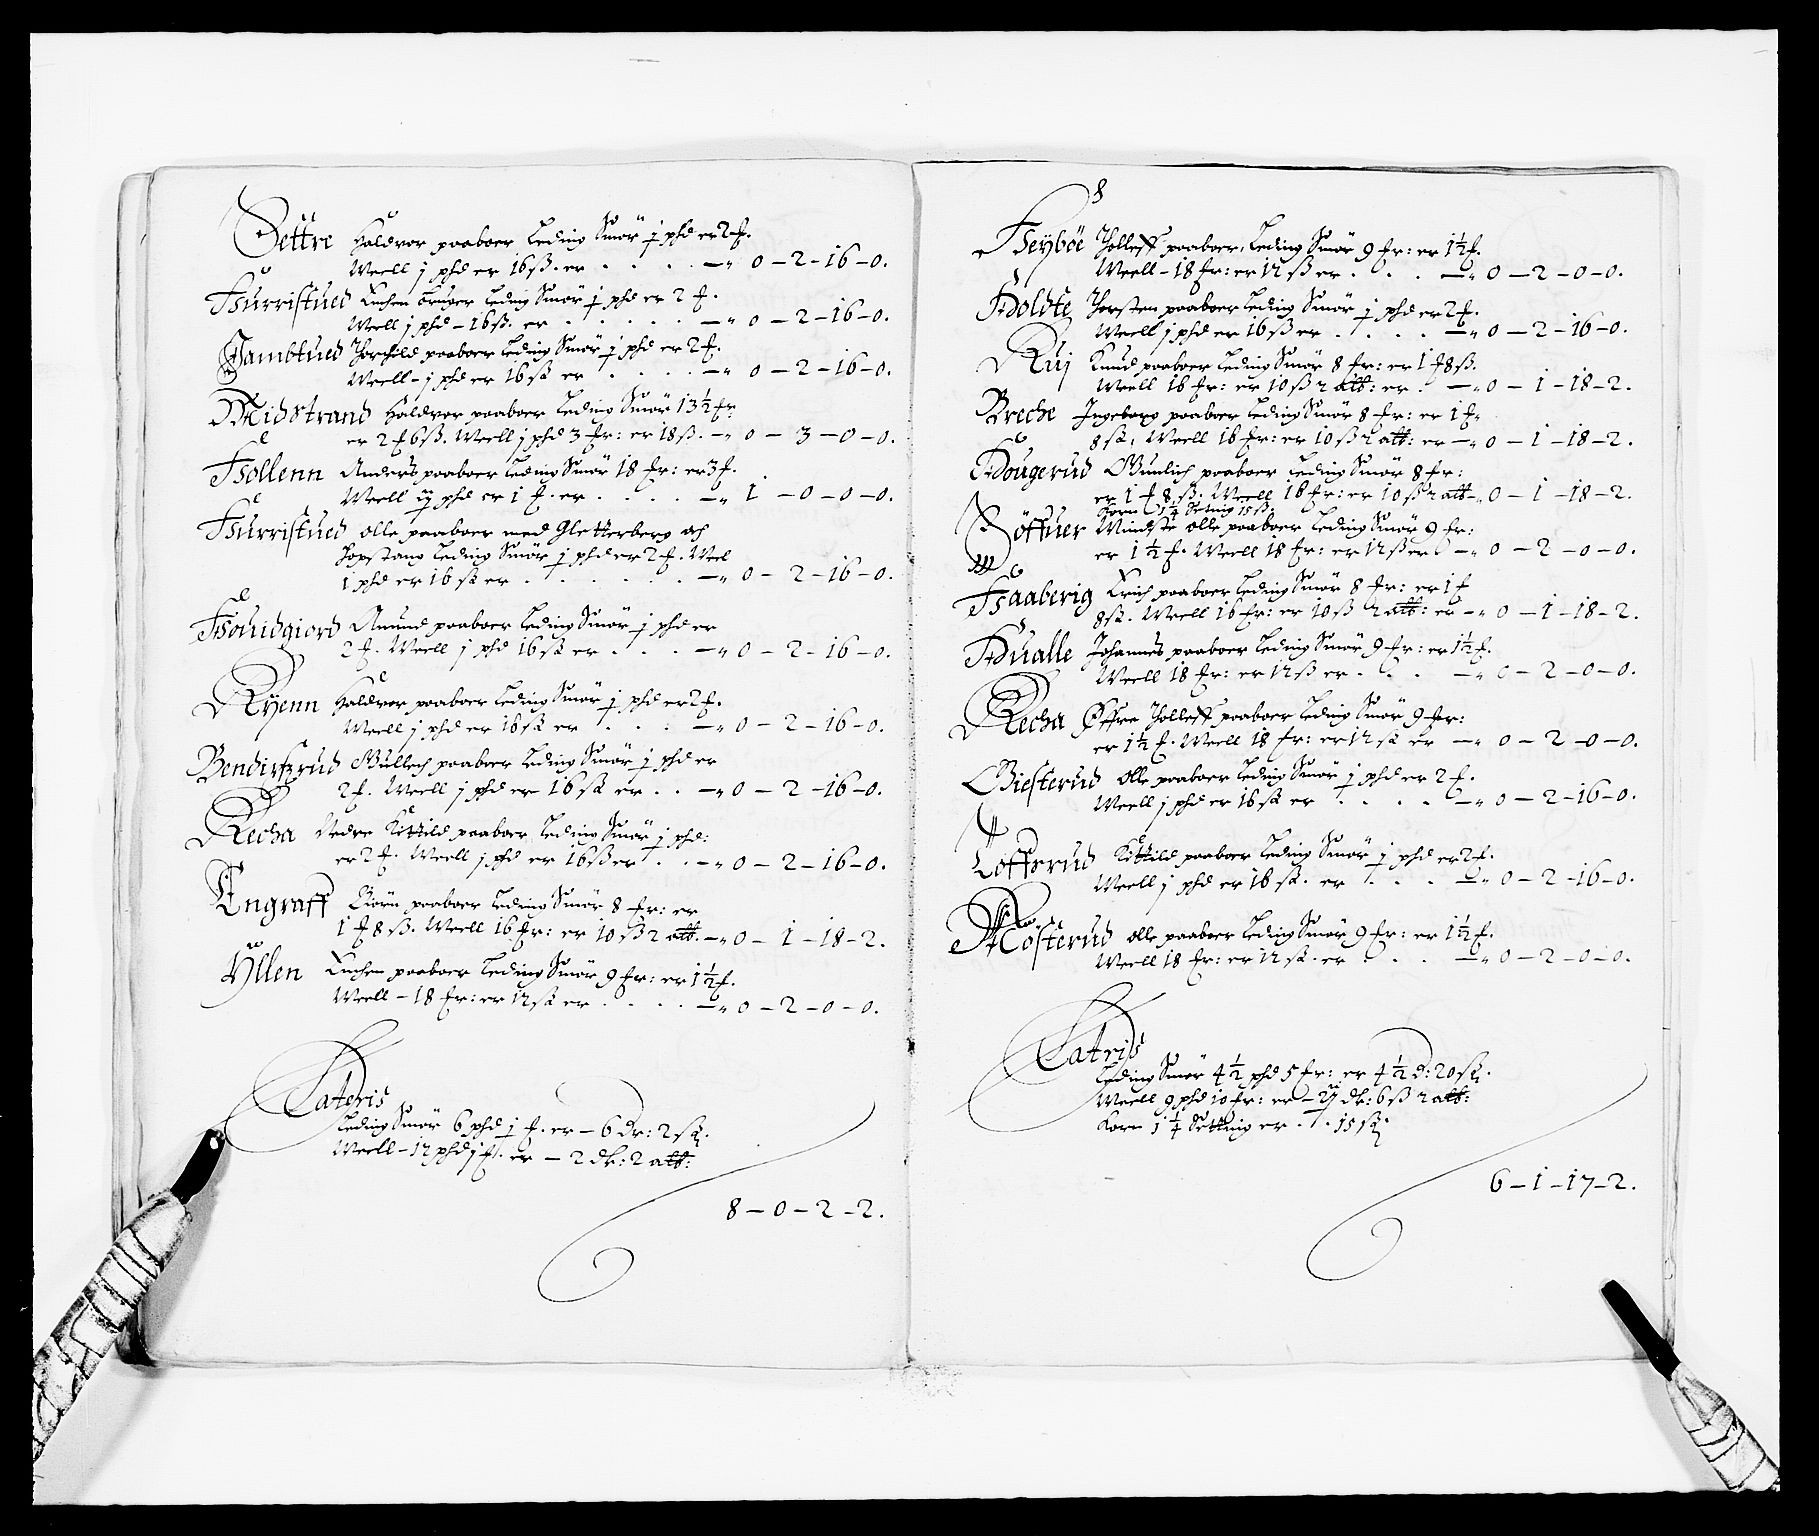 Settre Haldvor paaboer Leding Smör j phd er 2 f.
Meell j phd er 16 ß. er . . . . — 0 – 2 – 16 – 0.
Hurristued Kuchen bruger Leding Smör j phd er 2 f.
Meell j phd – 16 ß. er . . . . . — 0 – 2 – 16 – 0.
Jambtued Thorkild paaboer Leding Smör j phd er 2 f.
Meell – j phd er 16 ß er . . . . — 0 – 2 – 16 – 0.
Midstrand Haldvor paaboer Leding Smör 13½ fr
er 2 f 6 ß. Meell j phd 3 fr: er 18 ß. — 0 – 3 – 0 – 0.
Hollenn Anders paaboer Leding Smör 18 fr: er 3 f.
Meell ij phd er 1 f. er . . . . — 1 – 0 – 0 – 0.
Hurristued olle paaboer med Gletterberg och
Hopstang Leding Smör j phd er 2 f. Mel
1 phd er 16 ß er . . . . . . — 0 – 2 – 16 – 0.
Houidgiord Amund paaboer Leding Smör j phd er
2 f. Meell j phd 16 ß er . . . — 0 – 2 – 16 – 0.
Ryenn Haldvor paaboer Leding Smör j phd er 2 f.
Meell j phd er 16 ß er . . . . — 0 – 2 – 16 – 0.
Bendixrud Gullech paaboer Leding Smör j phd er
2 f. Meell j phd er 16 ß er . . — 0 – 2 – 16 – 0.
Recha Nedre Kittild paaboer Leding Smör j phd:
er 2 f. Meell j phd er 16 ß er . . — 0 – 2 – 16 – 0.
Engraff Biörn paaboer Leding Smör 8 fr: er
1 f 8 ß. Meell 16 fr: er 10 ß 2 alb. — 0 – 1 – 18 – 2.
Yllen Kuchen paaboer Leding Smör 9 fr: er 1½ f.
Meell – 18 fr: er 12 ß er . . . . — 0 – 2 – 0 – 0.
Lateris
Leding Smör 6 phd j f. er – 6 Dr: 2 ß.
Meell – 12 phd j f. er – 2 dr: 2 alb:
8 – 0 – 2 – 2.
8
Heyböe Tholleff paaboer, Leding Smör 9 fr: er 1½ f.
Meell – 18 fr: er 12 ß er . . . — 0 – 2 – 0 – 0.
Holdte Thorsten paaboer Leding Smör j phd er 2 f.
Meell j phd er 16 ß er . . . . — 0 – 2 – 16 – 0.
Ruj Knud paaboer Leding Smör 8 fr: er 1 f 8 ß.
Meell 16 fr: er 10 ß 2 alb: er . — 0 – 1 – 18 – 2.
Breche Ingeborg paaboer Leding Smör 8 fr: er 1 f
8 ß, Meell 16 fr: er 10 ß 2 alb: er — 0 – 1 – 18 – 2.
Hougerud Gunlich paaboer Leding Smör 8 fr:
er 1 f 8 ß. Meell 16 fr: er 10 ß 2 alb — 0 – 1 – 18 – 2.
Korn 1¼ Setting 15 ß.
Söffuer Mindste olle paaboer Leding Smör 9 fr:
er 1½ f. Meell 18 fr: er 12 ß er — 0 – 2 – 0 – 0.
Haaberig Erich paaboer Leding Smör 8 fr: er 1 f
8 ß. Meell 16 fr: er 10 ß 2 alb: er — 0 – 1 – 18 – 2.
Hualle Johannes paaboer Leding Smör 9 fr: er 1½ f.
Meell 18 fr: er 12 ß er . . . — 0 – 2 – 0 – 0.
Recha Öffre Tholleff paaboer Leding Smör 9 fr:
er 1½ f. Meell 18 fr: er 12 ß er — 0 – 2 – 0 – 0.
Giesterud olle paaboer Leding Smör j phd er 2 f.
Meell j phd er 16 ß er . . . . — 0 – 2 – 16 – 0.
Lofferud Kittild paaboer Leding Smör j phd er 2 f.
Meell j phd er 16 ß. er . . . — 0 – 2 – 16 – 0.
Mosterud olle paaboer Leding Smör 9 fr: er 1½ f.
Meell 18 fr: er 12 ß. er . . . — 0 – 2 – 0 – 0.
Latris
Leding Smör 4½ phd 5 fr: er 4½ D: 20 ß.
Meell 9 phd 10 fr: er – dr: 6 ß 2 alb:
Korn 1¼ Setting er . . 15 ß.
6 – 1 – 17 – 2.